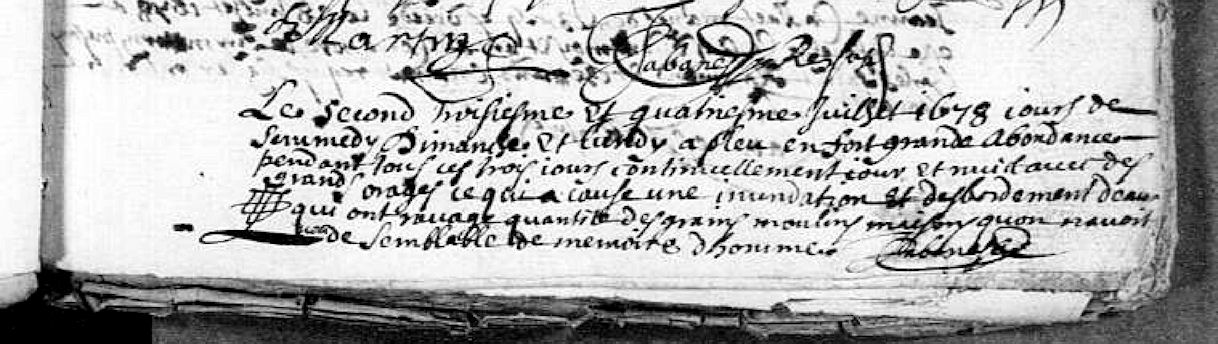 Martin Cabanes
Le second troisiesme et quatriesme Juillet 1678 jours de
Semmedy Dimanche et lundy a pleu en fort grande abondance
pendant tous ces trois jours continuellement jour et nuit avec des
grands orages ce qui a cause une inundation et desbordement deau
qui ont ravage quantité des grains moulins maisons quon navoit
veu de semblable de memoire dhomme Cabanes